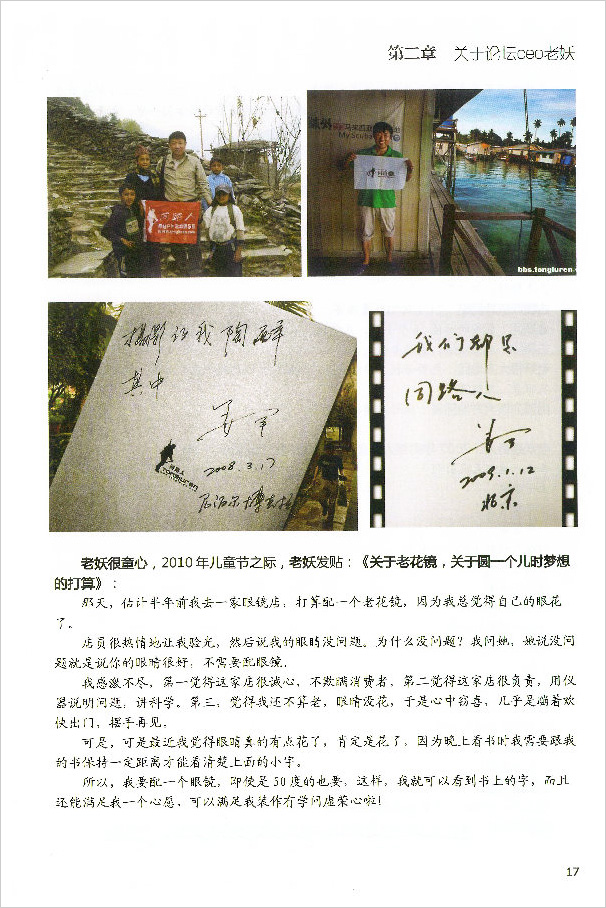 第二章 关于论坛ceo老妖
同路人
My Scuba
bbs.tongluren.cn
摄影让我陶醉
其中
2008.3.17
尼泊尔·博卡拉
我们都是
同路人
2009.1.12
北京
老妖很童心，2010年儿童节之际，老妖发贴：《关于老花镜，关于圆一个儿时梦想
的打算》：
那天，估计半年前我去一家眼镜店，打算配一个老花镜，因为我总觉得自己的眼花
了。
店员很热情地让我验光，然后说我的眼睛没问题。为什么没问题？我问她，她说没问
题就是说你的眼睛很好，不需要配眼镜。
我感激不尽，第一觉得这家店很诚心，不欺瞒消费者，第二觉得这家店很负责，用仪
器说明问题，讲科学。第三，觉得我还不算老，眼睛没花，于是心中窃喜，几乎是踹着欢
快出门，摆手再见。
可是，可是最近我觉得眼睛真的有点花了，肯定是花了，因为晚上看书时我需要跟我
的书保持一定距离才能看清楚上面的小字。
所以，我要配一个眼镜，即使是50度的也要，这样，我就可以看到书上的字，而且
还能满足我一个心愿，可以满足我装作有学问虚荣心啦！
17